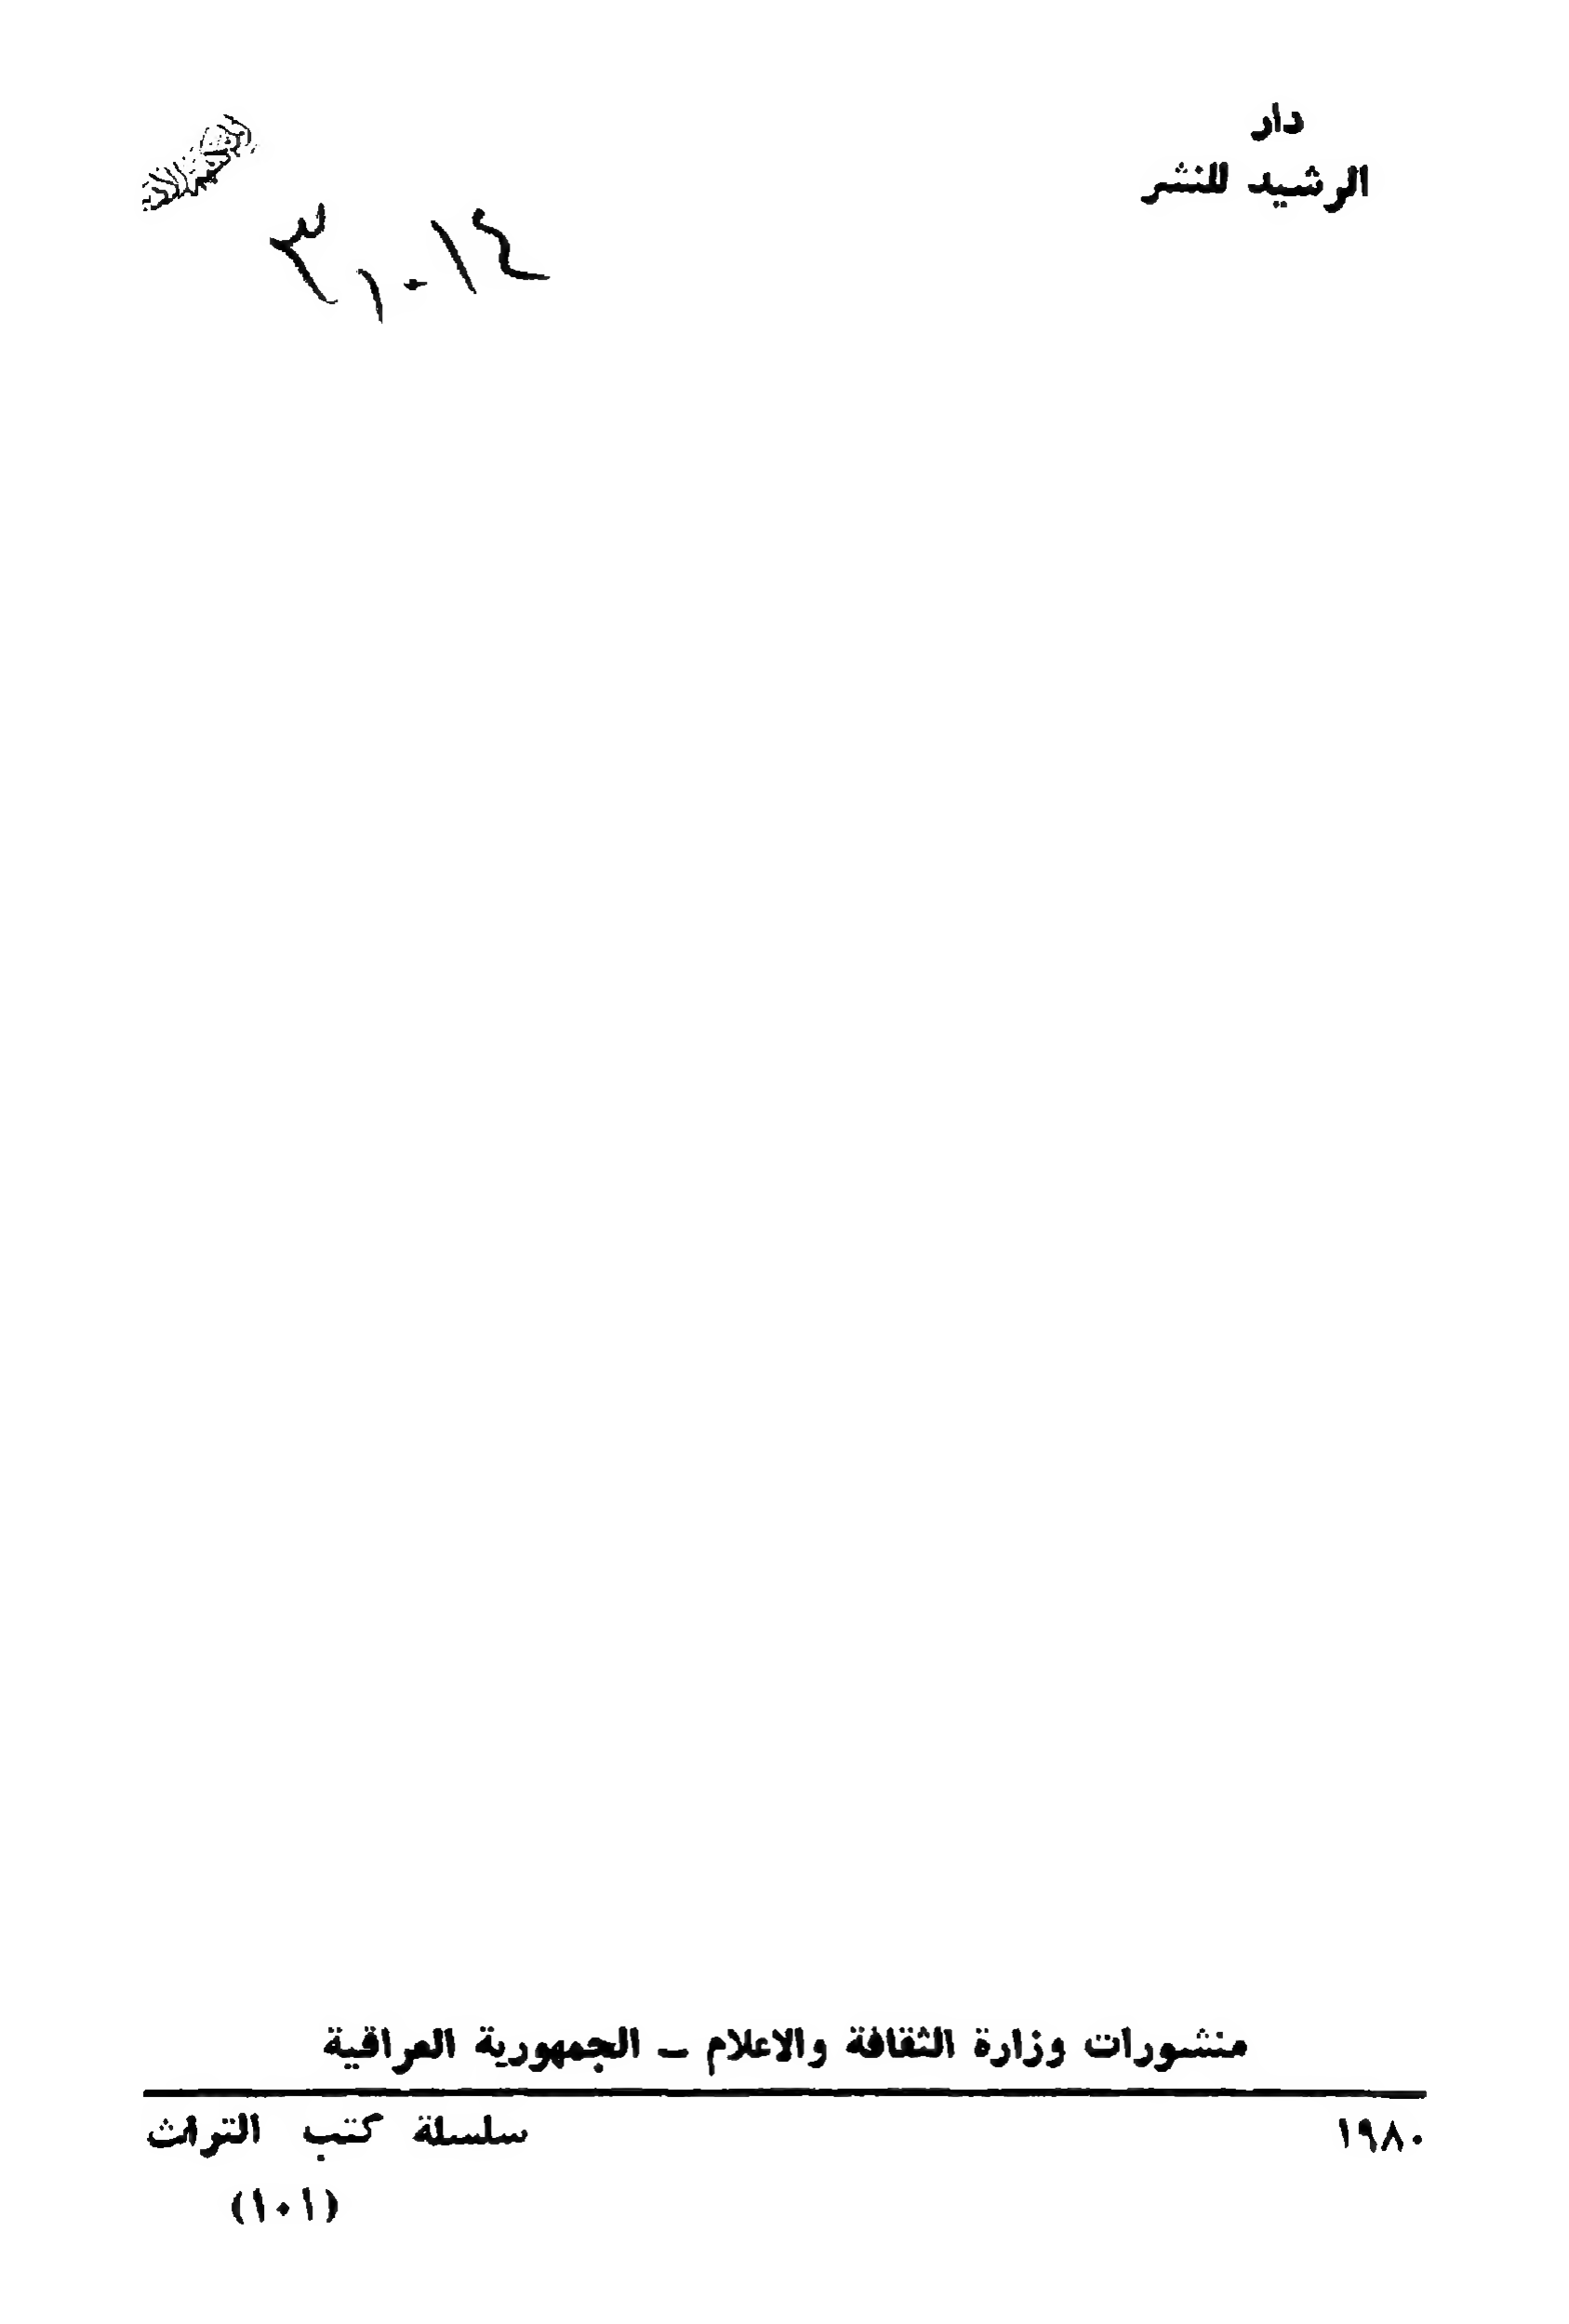 دار
الرشيد للنشر
٣١٠١٤
منشورات وزارة الثقافة والاعلام – الجمهورية العراقية
١٩٨٠
سلسلة كتب التراث
(١٠١)